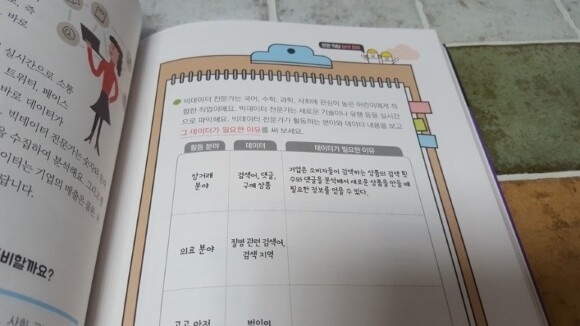 즉
바로
실시간으로 소통
트위터, 페이스
바로 데이터가
빅데이터 전문가는
을 수집하여 분석해요.
이터는 기업의 매출은 물론,
답니다.
비할까요?
빅데이터 전문가는 국어, 수학, 과학, 사회에 관심이 높은 어린이에게 적
합한 직업이에요. 빅데이터 전문가는 새로운 기술이나 유행 등을 실시간
으로 파악해요. 빅데이터 전문가가 활동하는 분야와 데이터 내용을 보고
그 데이터가 필요한 이유를 써 보세요.
활동 분야 데이터 데이터가 필요한 이유
상거래 분야 검색어, 댓글, 구매 상품
기업은 소비자들이 검색하는 상품의 검색 횟
수와 댓글을 분석해서 새로운 상품을 만들 때
필요한 정보를 얻을 수 있다.
의료 분야 질병 관련 검색어, 검색 지역
공공 안전 범인의